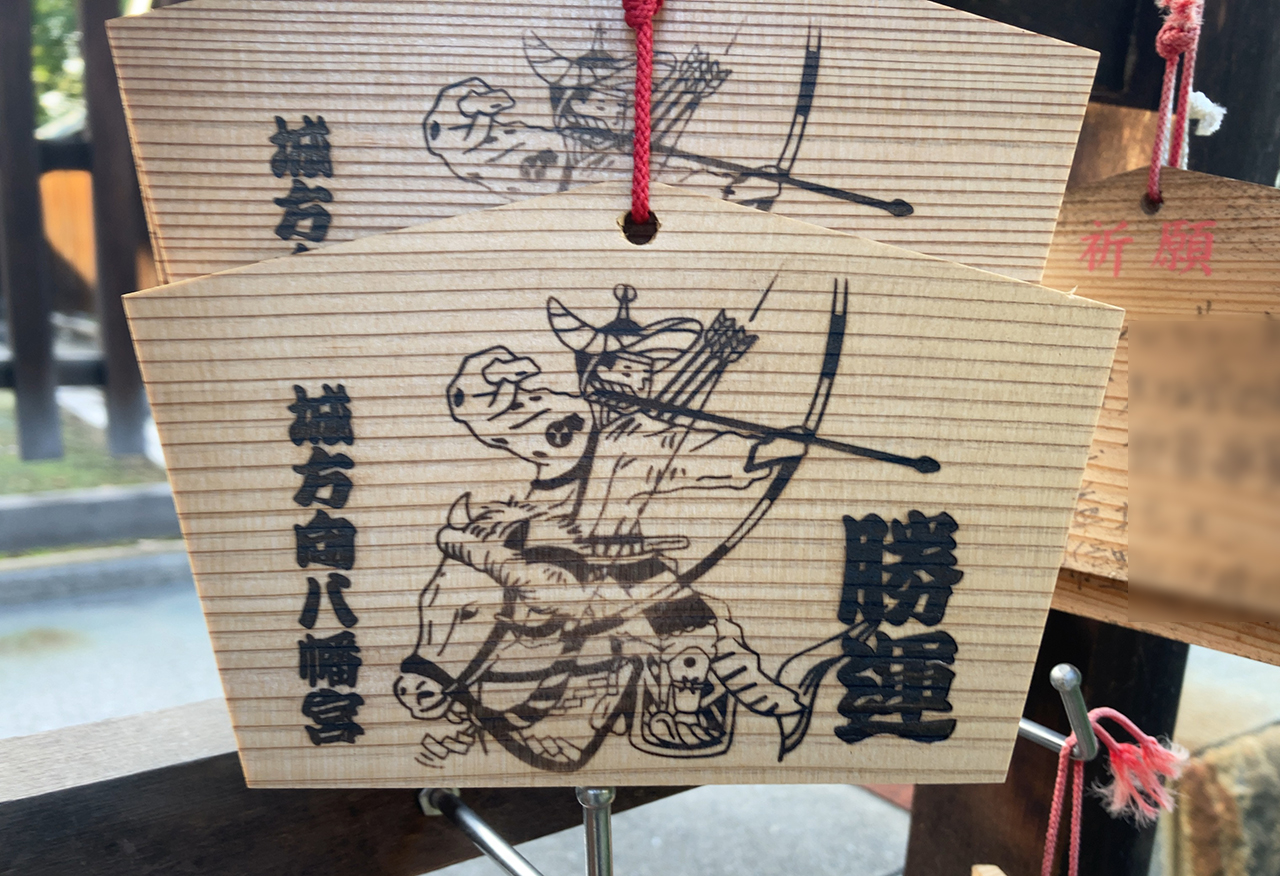 城方
祈願
勝運
城方向八幡宮